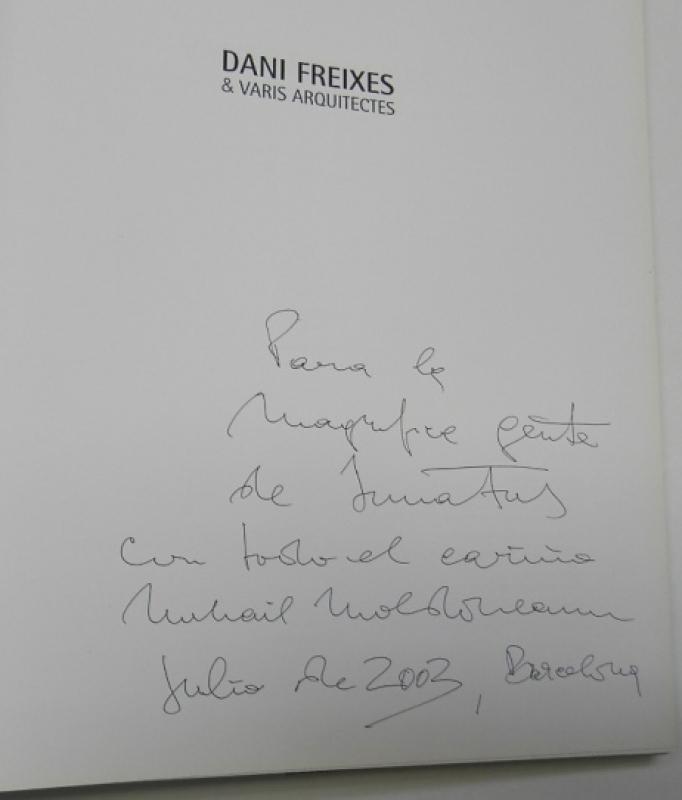 DANI FREIXES
& VARIS ARQUITECTES
Para la
Magnifica gente
de
con todo el cariño
Mihail Moldoveanu
Julio de 2003, Barcelona